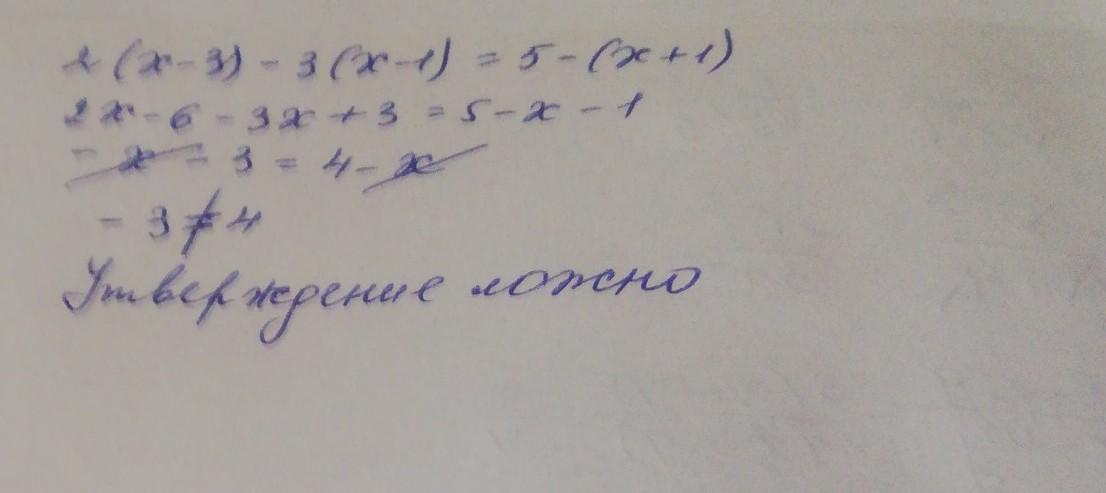 2(x-3)-3(x-1)=5-(x+1)
2x-6-3x+3=5-x-1
-x-3=4-x
-3≠4
Утверждение ложно